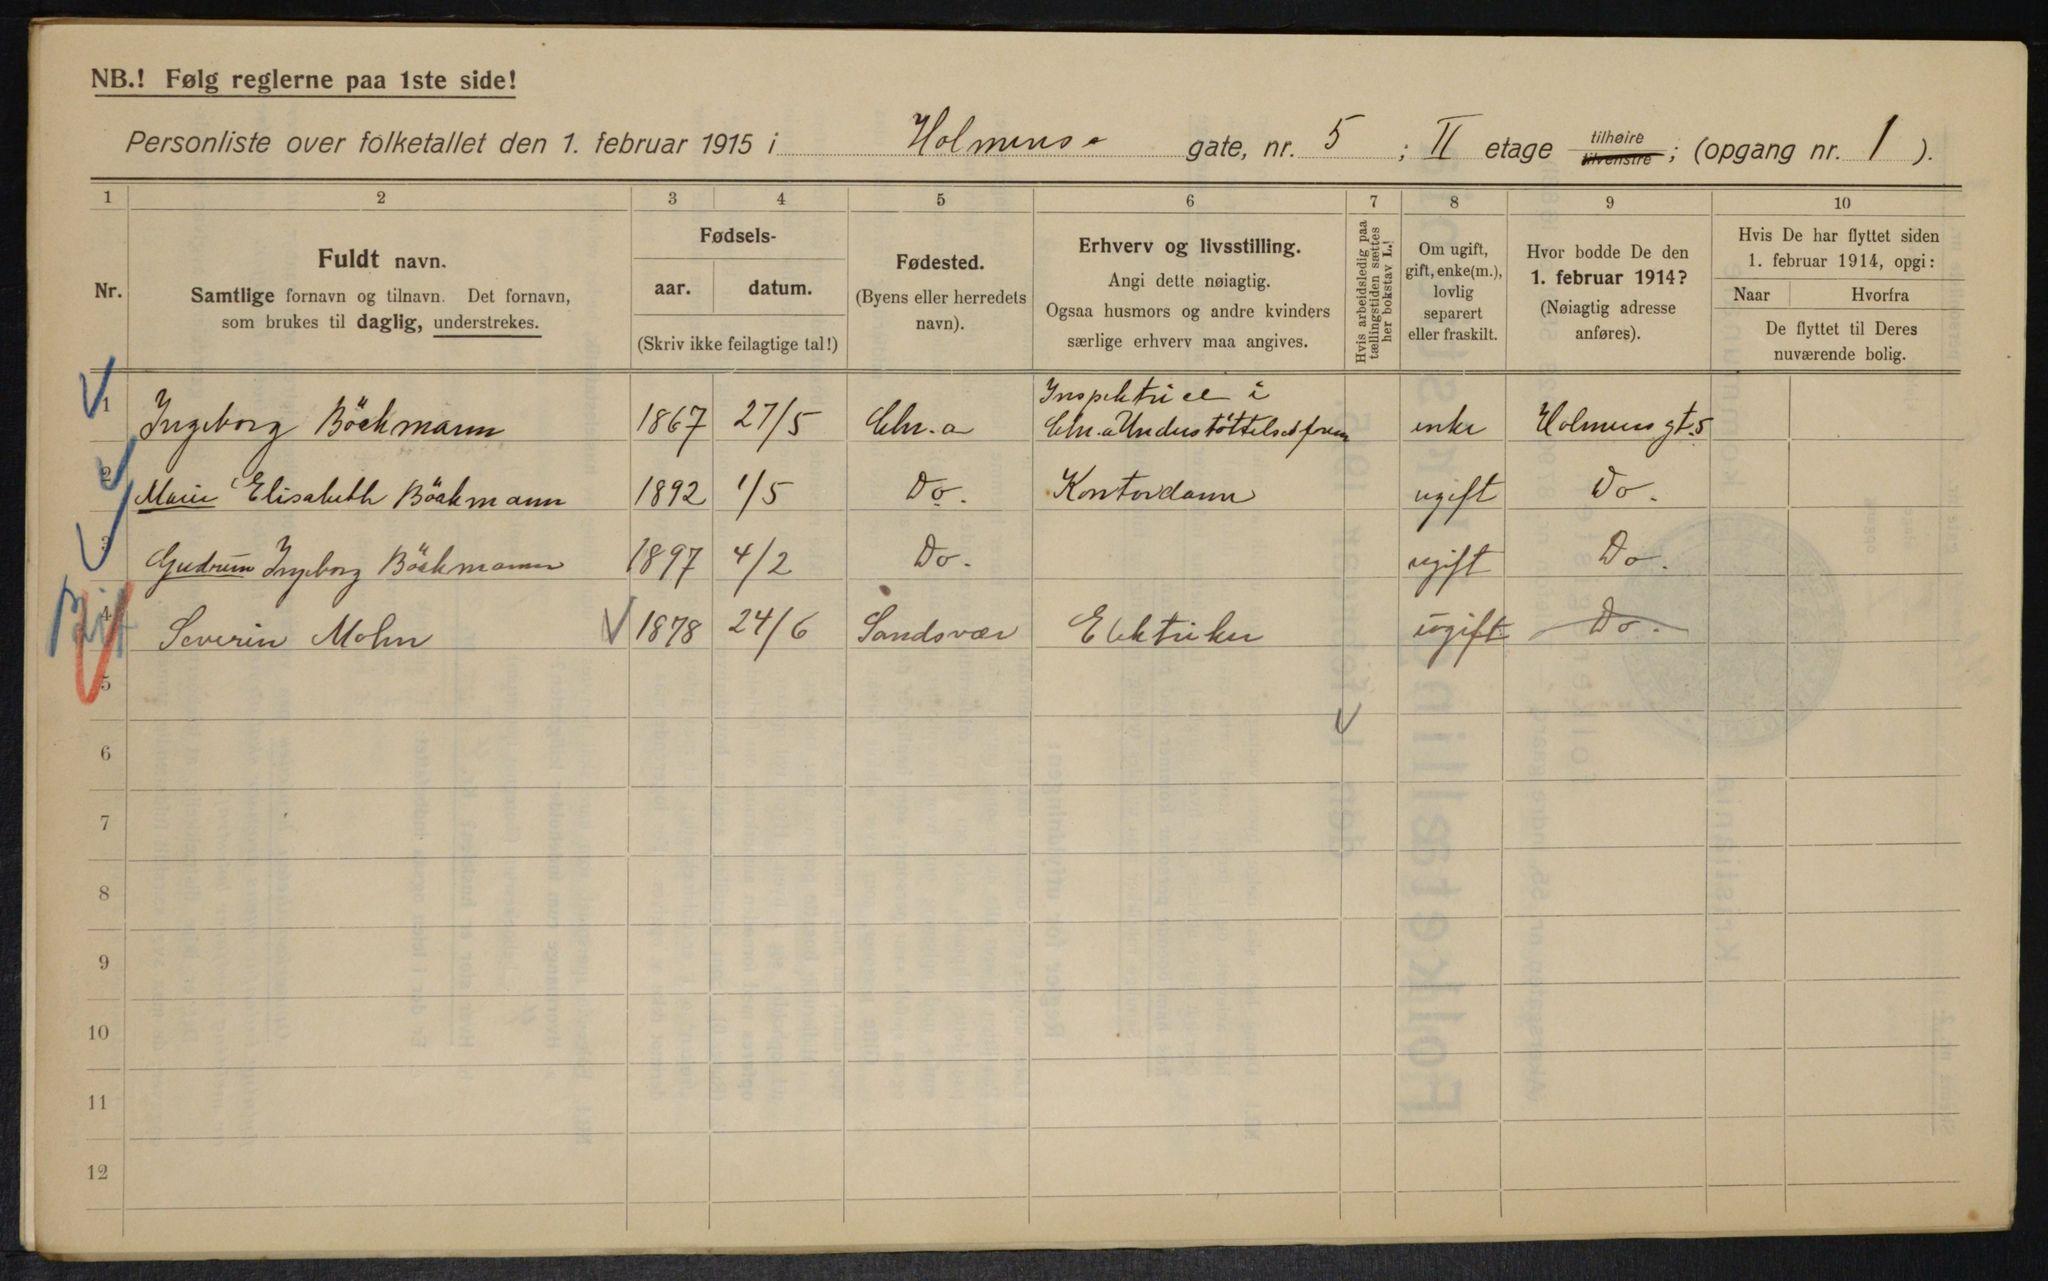 NB.! Følg reglerne paa 1ste side!
Personliste over folketallet den 1. februar 1915 i Holmens gate, nr. 5 ; II etage tilhøire tilvenstre ; (opgang nr. 1 ).
1 2 3 4 5 6 7 8 9 10
Nr.
Fuldt navn.
Samtlige fornavn og tilnavn. Det fornavn,
som brukes til daglig, understrekes.
Fødsels-
aar. datum.
(Skriv ikke feilagtige tal!)
Fødested.
(Byens eller herredets
navn).
Erhverv og livsstilling.
Angi dette nøiagtig.
Ogsaa husmors og andre kvinders
særlige erhverv maa angives.
Hvis arbeidsledig paa
tællingstiden sættes
her bokstav L.!
Om ugift,
gift, enke(m.),
lovlig
separert
eller fraskilt.
Hvor bodde De den
1. februar 1914?
(Nøiagtig adresse
anføres).
Hvis De har flyttet siden
1. februar 1914, opgi:
Naar Hvorfra
De flyttet til Deres
nuværende bolig.
1 Ingeborg Böckmann 1867 27/5 Chr.a Inspektrice i Chr.a Understöttelsesforen enke Holmensgt. 5
2 Marie Elisabeth Böckmann 1892 1/5 Do. Kontordame ugift Do.
3 Gudrun Ingeborg Böckmann 1897 4/2 Do. ugift Do.
4 Severin Mohn 1878 24/6 Sandsvær Elektriker ugift Do.
5
6
7
8
9
10
11
12